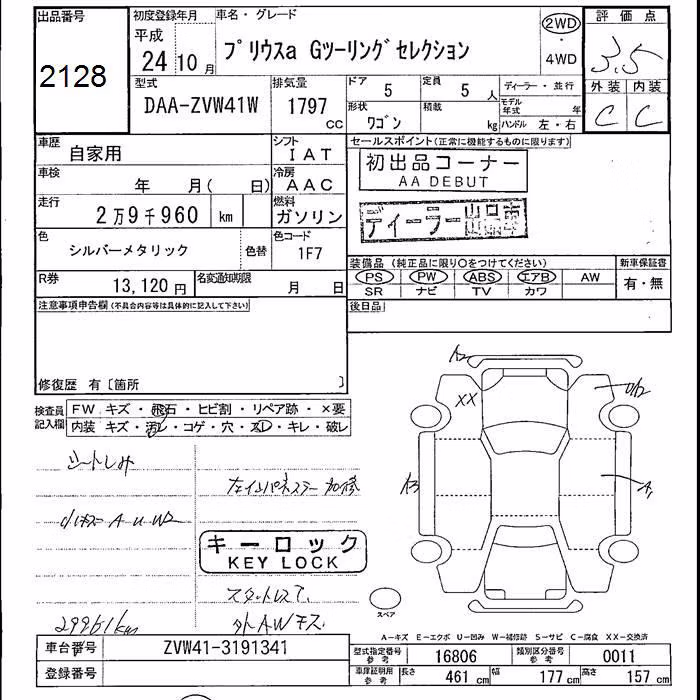 出品番号
2128
初度登録年月
平成
24年10月
車名・グレード
プリウスa Gツーリングセレクション
2WD
・
4WD
評価点
3.5
外装 内装
C C
型式
DAA-ZVW41W
排気量
1797
cc
ドア 5
定員 5 人
形状 ワゴン
積載 kg
ディーラー・並行
モデル年式 年
ハンドル 左・右
車歴 自家用
シフト IAT
車検 年 月( 日)
冷房 AAC
走行 2万9千960 km
燃料 ガソリン
色 シルバーメタリック 色替
色コード 1F7
R券 13,120円
名変通知期限 月 日
セールスポイント(正常に機能するものに限ります)
初出品コーナー
AA DEBUT
ディーラー出品車
装備品(純正品に限り○をつけてください)
PS PW ABS エアB AW
SR ナビ TV カワ
新車保証書
有・無
後日品
注意事項申告欄(不具合内容等は具体的に記入して下さい)
修復歴 有〔箇所 〕
検査員記入欄
FW キズ・飛石・ヒビ割・リペア跡・×要
内装 キズ・汚レ・コゲ・穴・スレ・キレ・破レ
シートしみ
小キズ A U W2
29961km
キーロック
KEY LOCK
外AWキズ
A2
XX
A3
A1
スペア
A-キズ E-エクボ U-凹み W-補修跡 S-サビ C-腐食 XX-交換済
車台番号 ZVW41-3191341
登録番号
型式指定番号 参考 16806
類別区分番号 参考 0011
車庫証明用 参考 長さ 461 cm 幅 177 cm 高さ 157 cm